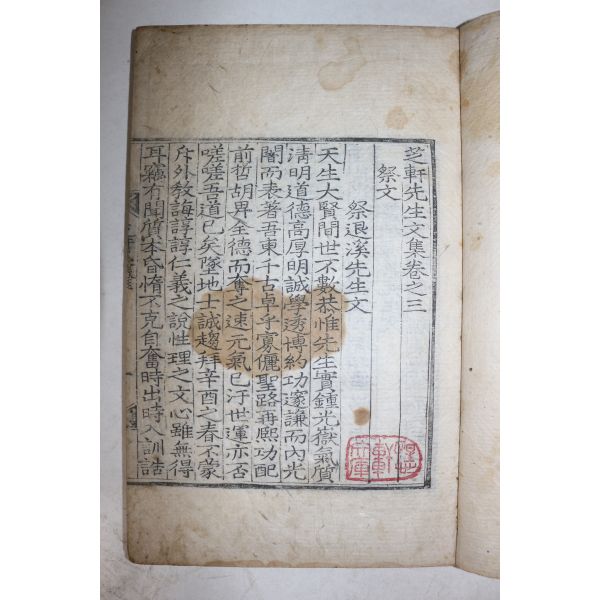 芝軒先生文集卷之三
祭文
祭退溪先生文
天生大賢間世不數恭惟先生實鍾光嶽氣質
淸明道德高厚明誠學透博約功邃謙而內光
闇而表著吾東千古卓乎寡儷聖路再熙功配
前哲胡畀全德而奪之速元氣已汙世運亦否
嗟嗟吾道已矣墜地士誠趨拜辛酉之春不蒙
斥外敎誨諄諄仁義之說性理之文心雖無得
耳竊有聞質本昏惰不克自奮時出時入訓誥